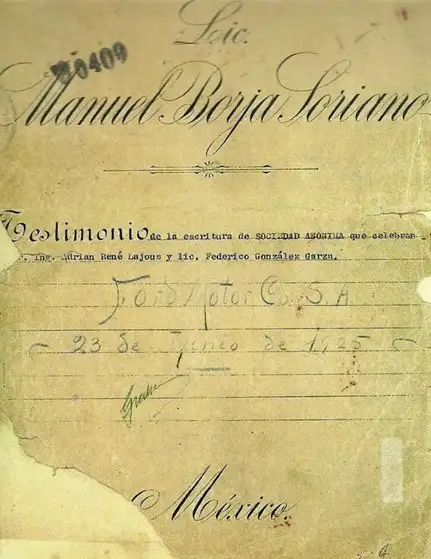 Lic.
60409
Manuel Borja Soriano
Testimonio de la escritura de SOCIEDAD ANONIMA que celebran
Ing. Adrian René Lajous y lic. Federico González Garza.
Ford Motor Co. S. A
23 de de 1925
México.
4